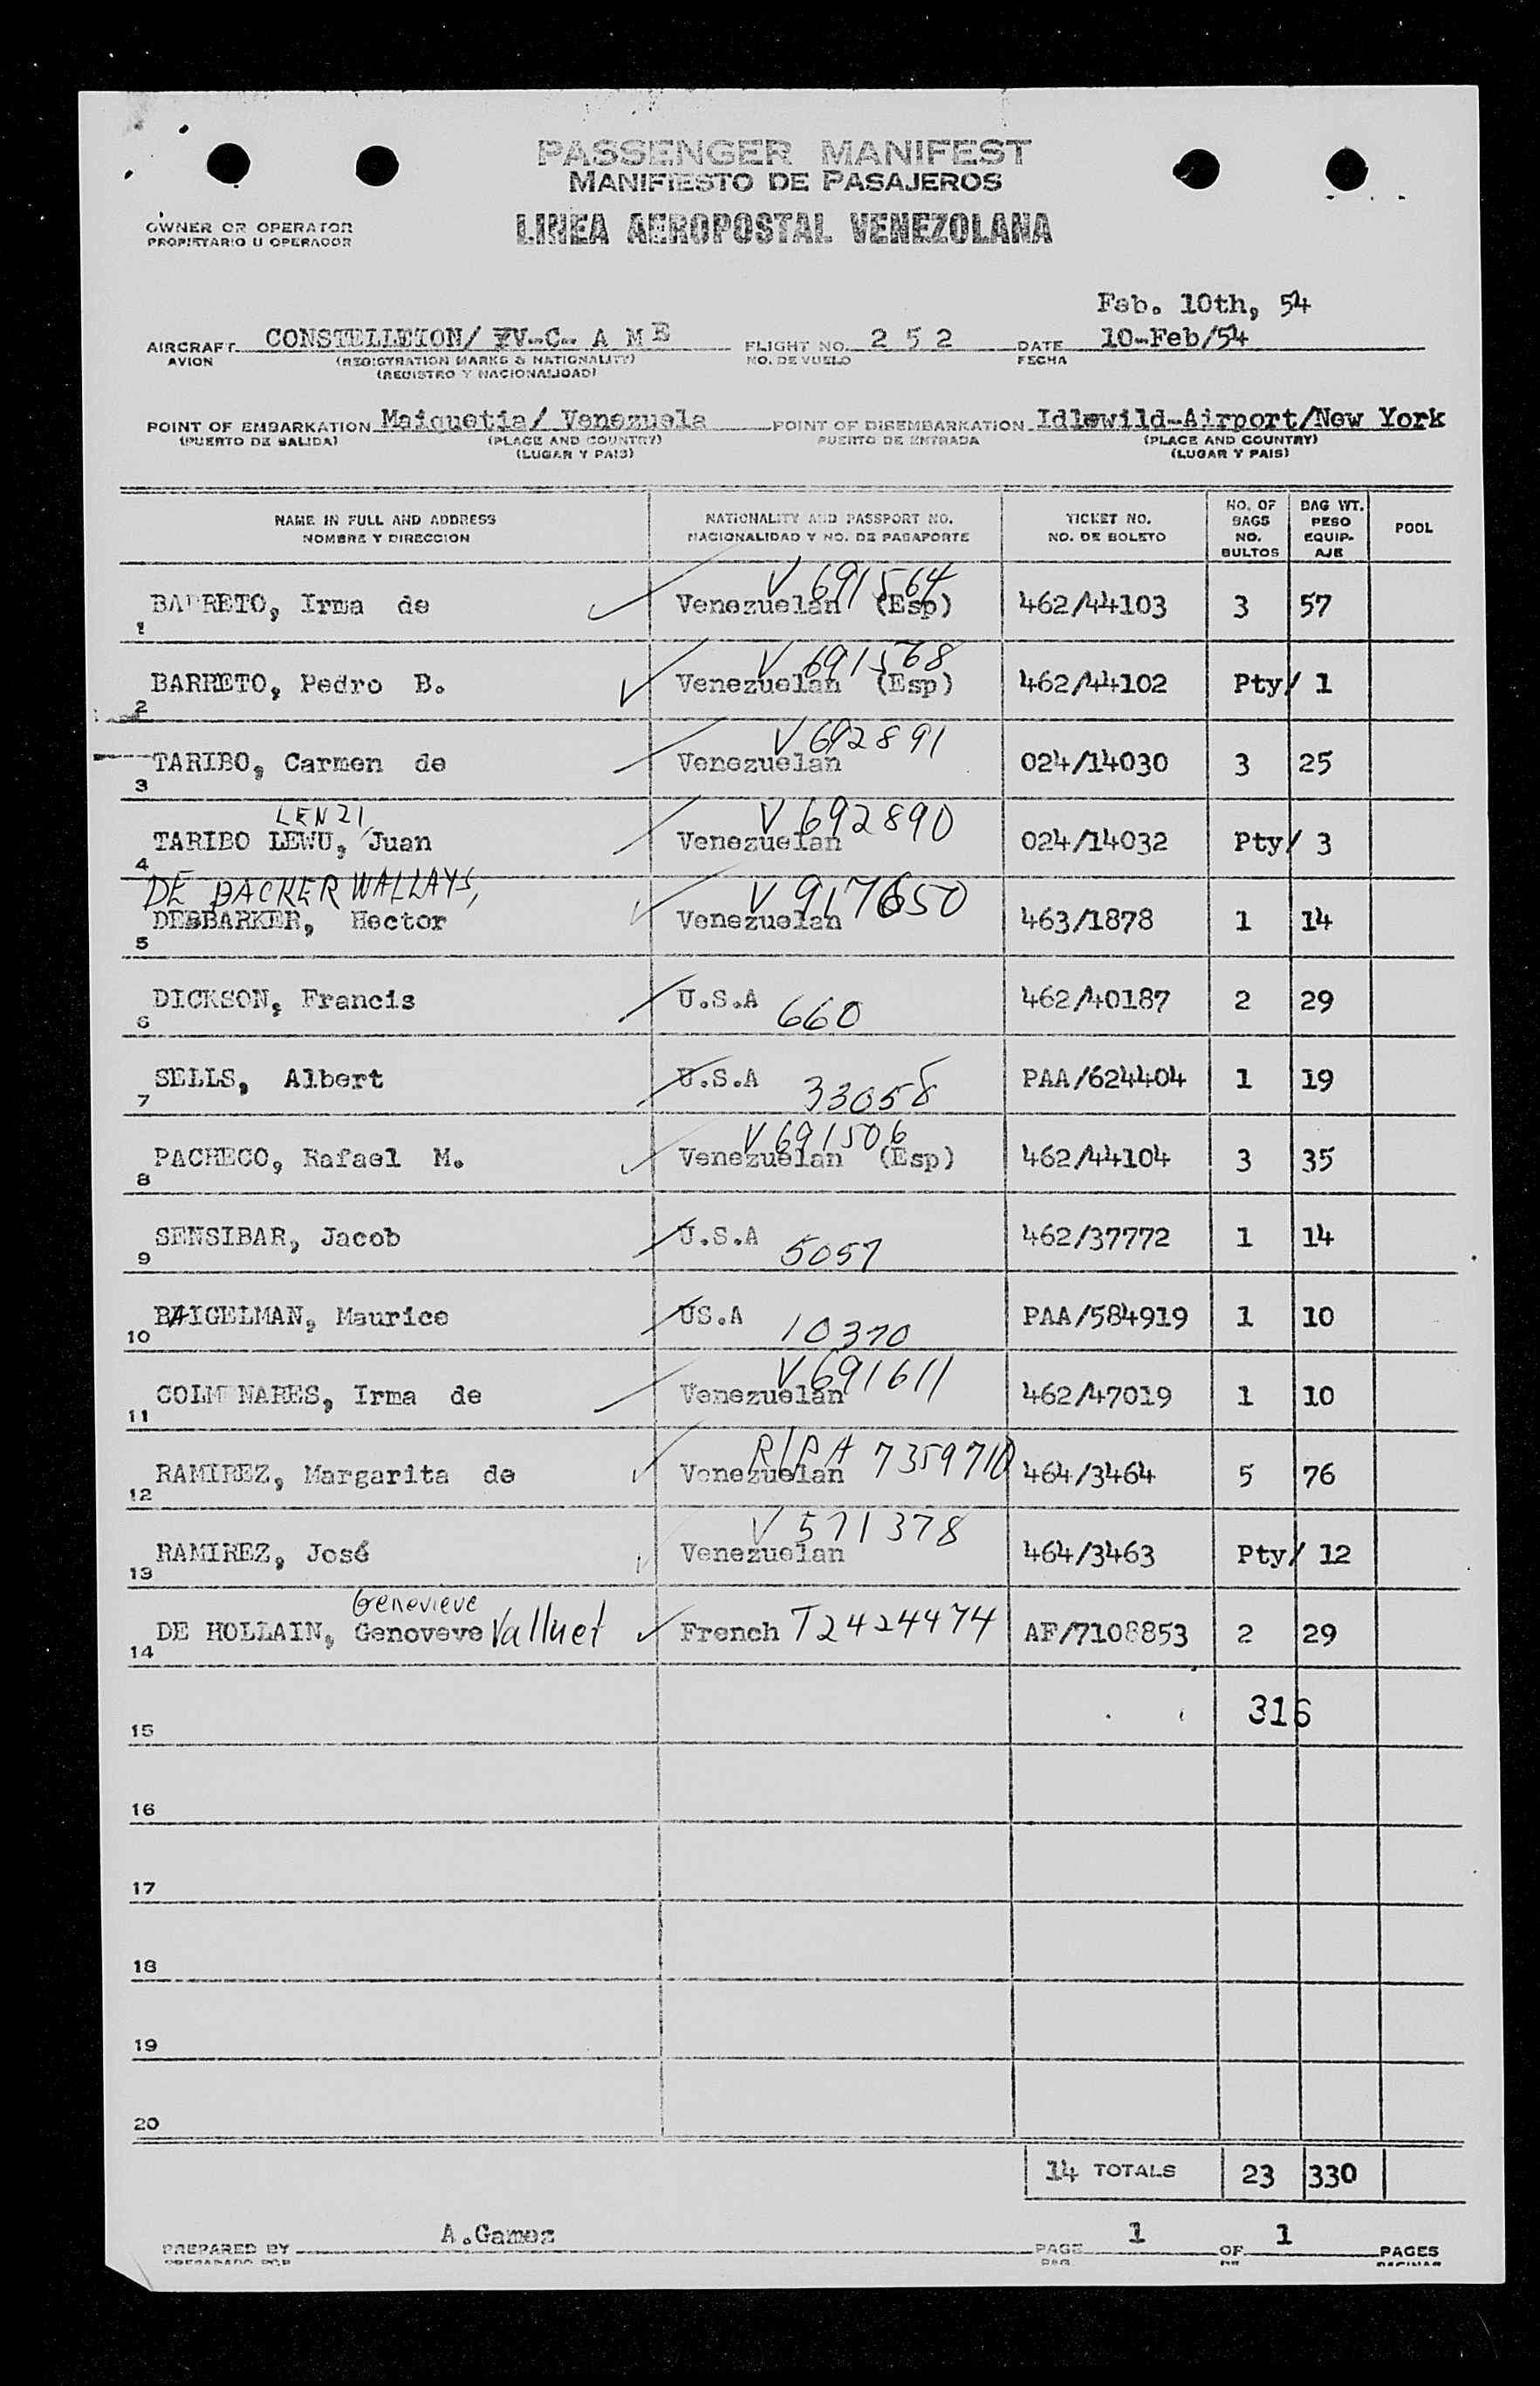 PASSENGER MANIFEST
MANIFIESTO DE PASAJEROS
OWNER OR OPERATOR
PROPIETARIO U OPERADOR
LINEA AEROPOSTAL VENEZOLANA
Feb. 10th, 54
AIRCRAFT CONSTELLETION/ YV-C- A M E FLIGHT NO. 2 5 2 DATE 10-Feb/54
AVION (REGISTRATION MARKS & NATIONALITY) NO. DE VUELO FECHA
(REGISTRO Y NACIONALIDAD)
POINT OF EMBARKATION Maiquetia/ Venezuela POINT OF DISEMBARKATION Idlewild-Airport/New York
(PUERTO DE SALIDA) (PLACE AND COUNTRY) PUERTO DE ENTRADA (PLACE AND COUNTRY)
(LUGAR Y PAIS) (LUGAR Y PAIS)
NAME IN FULL AND ADDRESS NATIONALITY AND PASSPORT NO. TICKET NO. NO. OF BAGS BAG WT. POOL
NOMBRE Y DIRECCION NACIONALIDAD Y NO. DE PASAPORTE NO. DE BOLETO NO. BULTOS PESO EQUIP-AJE
V 691564
1 BARRETO, Irma de Venezuelan (Esp) 462/44103 3 57
V 691568
2 BARRETO, Pedro B. Venezuelan (Esp) 462/44102 Pty/ 1
V 692891
3 TARIBO, Carmen de Venezuelan 024/14030 3 25
LENZI V 692890
4 TARIBO LEWU, Juan Venezuelan 024/14032 Pty/ 3
DE BACKER WALLAYS, V 917650
5 DEBBARKER, Hector Venezuelan 463/1878 1 14
6 DICKSON, Francis U.S.A 660 462/40187 2 29
7 SELLS, Albert U.S.A 33058 PAA/624404 1 19
V 691506
8 PACHECO, Rafael M. Venezuelan (Esp) 462/44104 3 35
9 SENSIBAR, Jacob U.S.A 5057 462/37772 1 14
10 BAIGELMAN, Maurice US.A 10370 PAA/584919 1 10
V 691611
11 COLMENARES, Irma de Venezuelan 462/47019 1 10
R/PA 7359710
12 RAMIREZ, Margarita de Venezuelan 464/3464 5 76
V 571378
13 RAMIREZ, José Venezuelan 464/3463 Pty/ 12
Genevieve
14 DE HOLLAIN, Genoveve Valluet French T2424474 AF/7108853 2 29
15 316
16
17
18
19
20
14 TOTALS 23 330
PREPARED BY A.Gamez PAGE 1 OF 1 PAGES